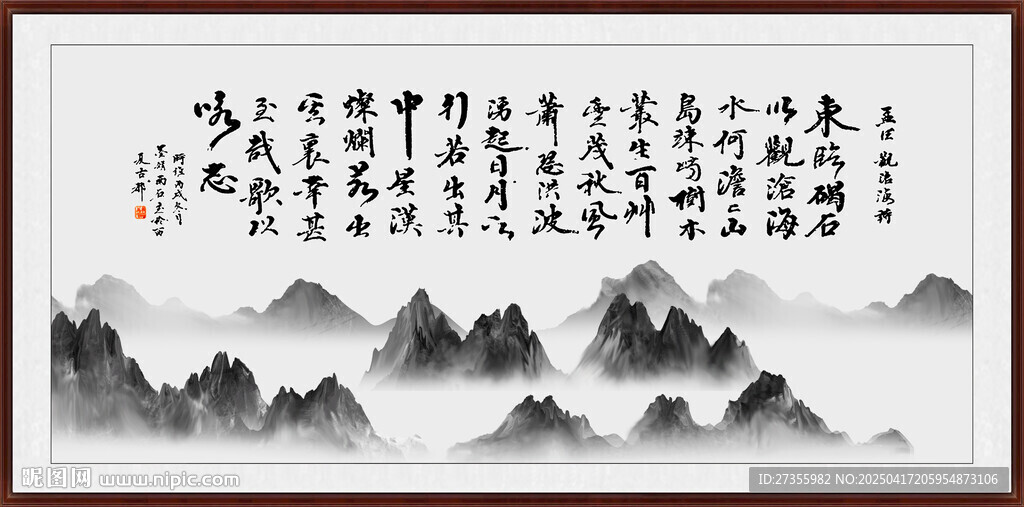 孟德觀滄海詩
東臨碣石
以觀滄海
水何澹々山
島竦峙樹木
叢生百艸
豐茂秋風
蕭瑟洪波
湧起日月之
行若出其
中星漢
燦爛若出
其裏幸甚
至哉歌以
咏志
時在丙戌冬月
雨石書於
夏古都
昵图网 www.nipic.com
ID:27355982 NO:20250417205954873106